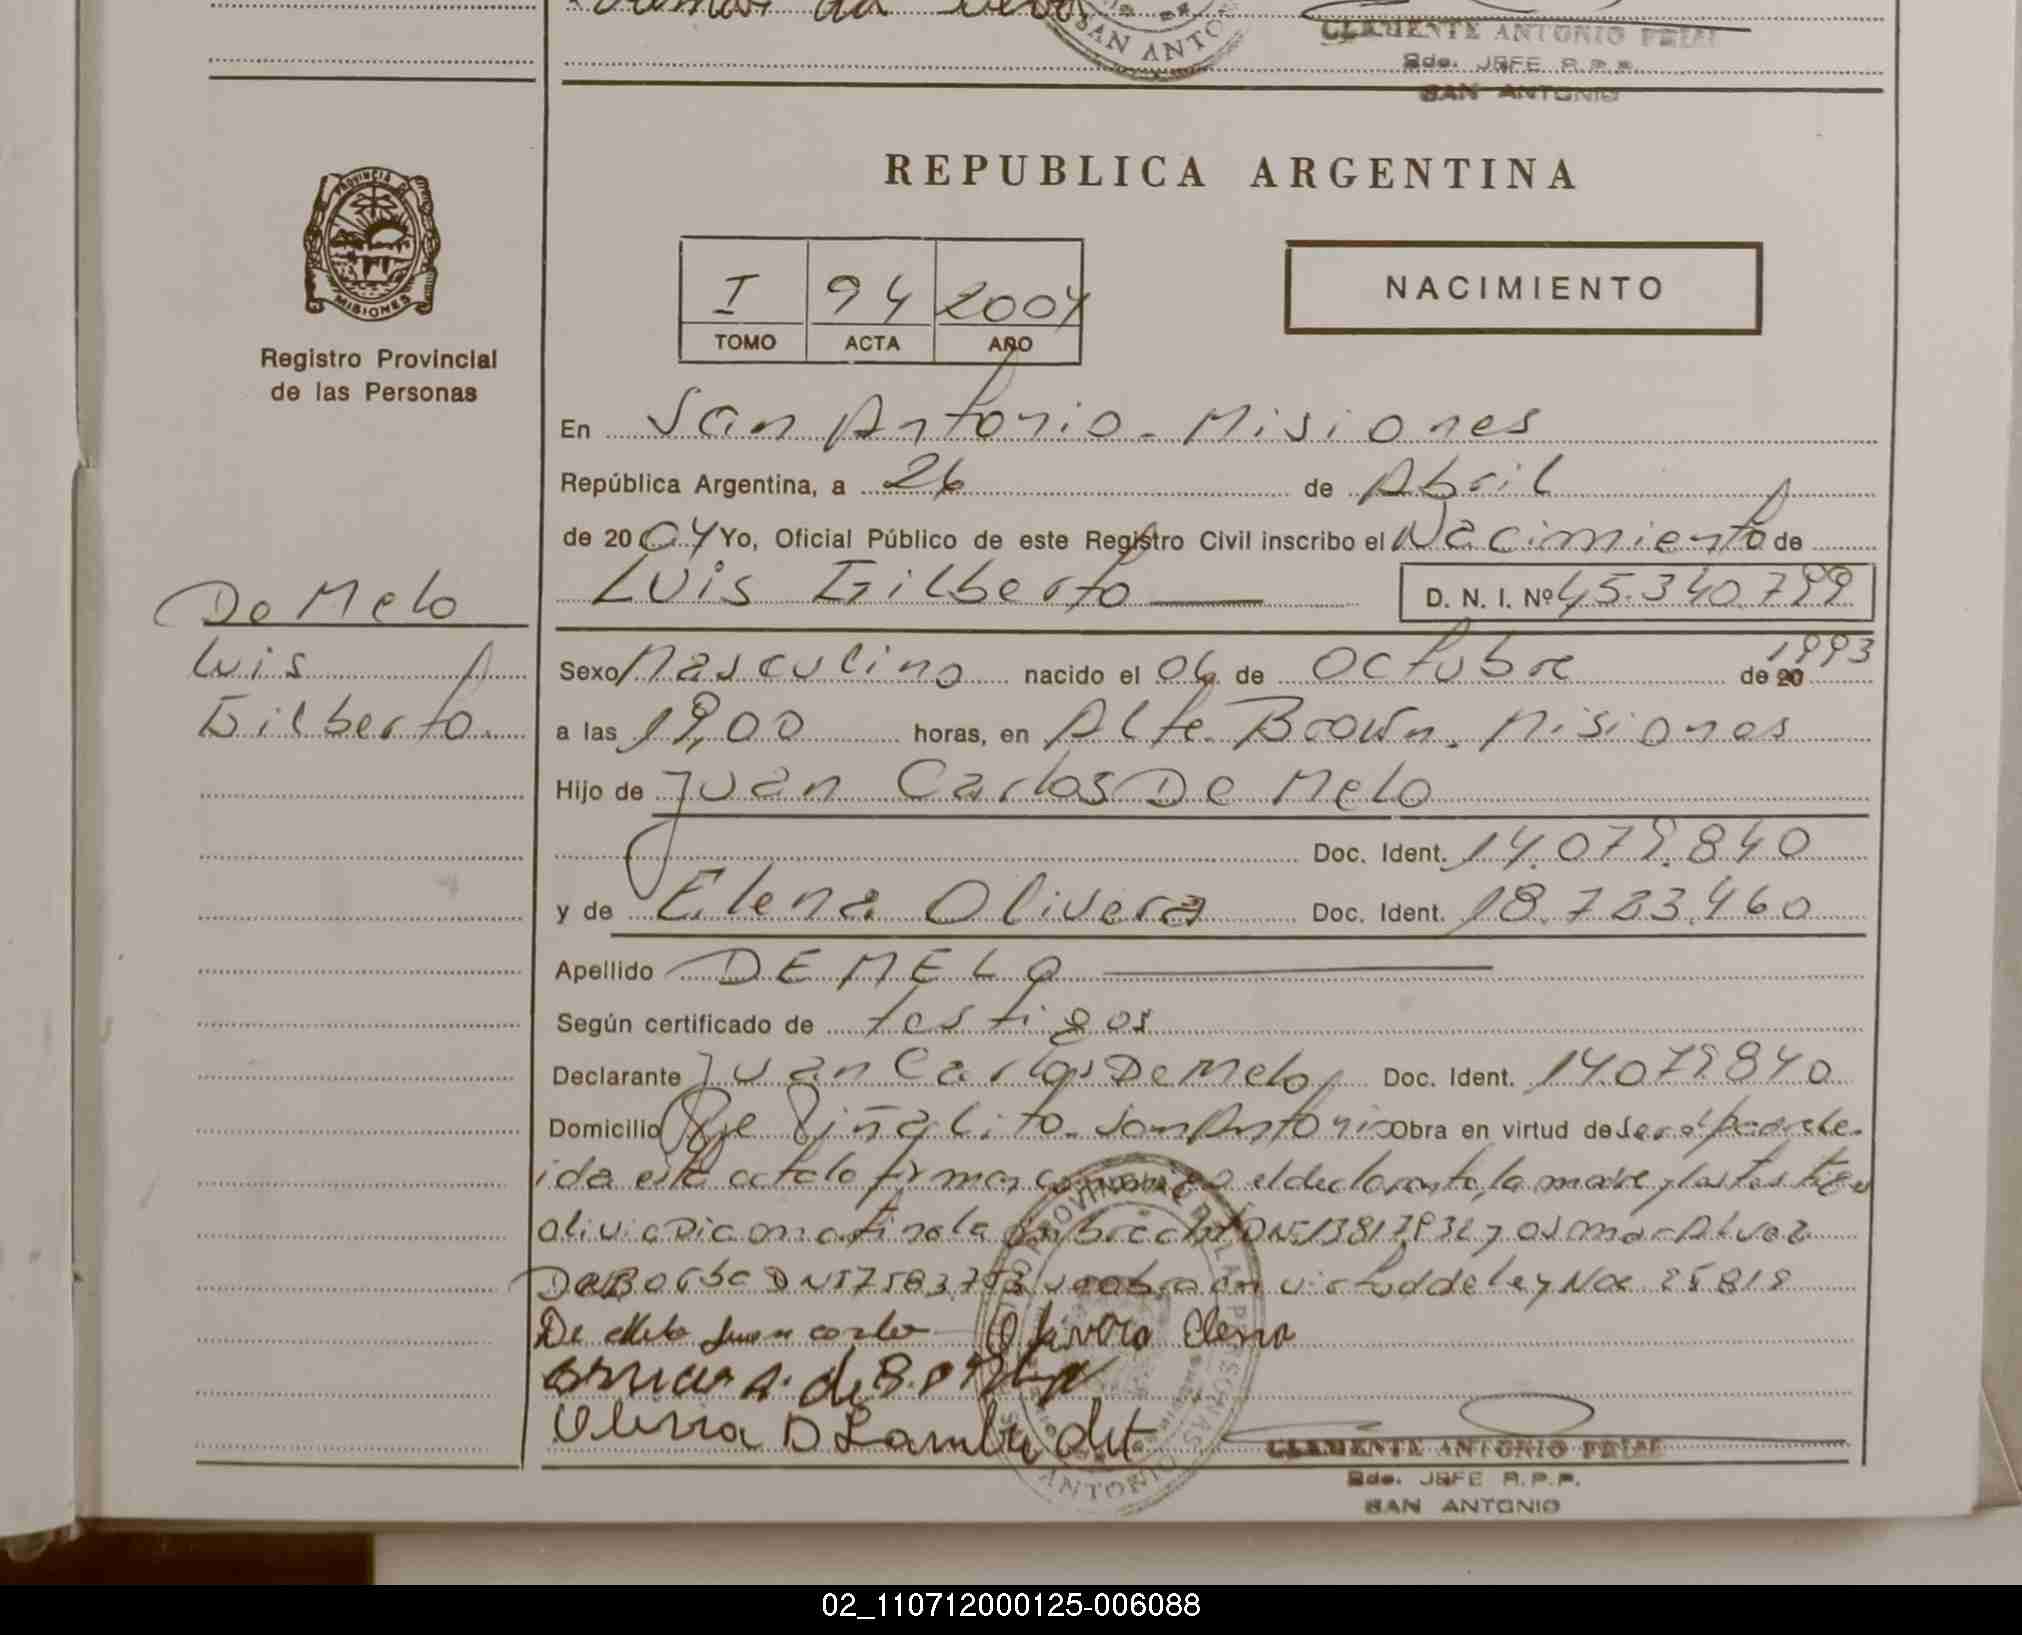 SAN ANTO
CLEMENTE ANTONIO
Bdo. JEFE R.P.P.
SAN ANTONIO
PROVINCIA DE
MISIONES
Registro Provincial
de las Personas
REPUBLICA ARGENTINA
I 94 2004
TOMO ACTA AÑO
NACIMIENTO
En San Antonio - Misiones
República Argentina, a 26 de Abril
de 2004 Yo, Oficial Público de este Registro Civil inscribo el Nacimiento de
Luis Gilberto D. N. I. Nº 45.340.799
De Melo
Luis
Gilberto
Sexo Masculino nacido el 06 de Octubre de 20 1993
a las 19,00 horas, en Alte. Brown. Misiones
Hijo de Juan Carlos De Melo
Doc. Ident. 14.079.840
y de Elena Olivera Doc. Ident. 18.723.460
Apellido DE MELO
Según certificado de testigos
Declarante Juan Carlos De Melo Doc. Ident. 14.079840
Domicilio Pje Piñalito - San Antonio Obra en virtud de ser el padre le-
ida esta acta la firman conmigo el declarante, la madre y los testigos
Olivia Diamantina DNI y Osmar Alvez
De Borba DNI en virtud de ley Nº 25819
De Melo Juan Carlo Olivera Elena
Osmar A. de Borba
Olivia D Lambrecht
CLEMENTE ANTONIO
Bdo. JEFE R.P.P.
SAN ANTONIO
02_110712000125-006088